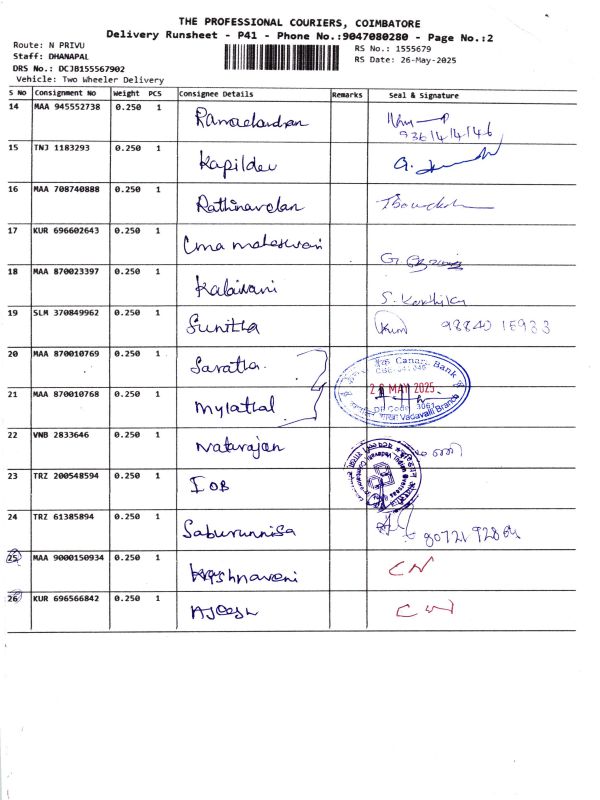 THE PROFESSIONAL COURIERS, COIMBATORE
Delivery Runsheet - P41 - Phone No.:9047080280 - Page No.:2
Route: N PRIVU
RS No.: 1555679
Staff: DHANAPAL
RS Date: 26-May-2025
DRS No.: DCJB155567902
Vehicle: Two Wheeler Delivery
S No Consignment No Weight PCS Consignee Details Remarks Seal & Signature
14 MAA 945552738 0.250 1 Ramachandran
15 TNJ 1183293 0.250 1 Kapildev
16 MAA 708740888 0.250 1 Rathinavelan
17 KUR 696602643 0.250 1 Uma maheswari
18 MAA 870023397 0.250 1 Kalaivani S. Karthika
19 SLM 370849962 0.250 1 Sunitha 98840 15933
20 MAA 870010769 0.250 1 Saratha Canara Bank
26 MAY 2025
21 MAA 870010768 0.250 1 Mylathal Vadavalli Branch
22 VNB 2833646 0.250 1 Natarajan
23 TRZ 200548594 0.250 1 IOB
24 TRZ 61385894 0.250 1 Saburunnisa
25 MAA 9000150934 0.250 1 Krishnaveni CN
26 KUR 696566842 0.250 1 Ajeesh CN